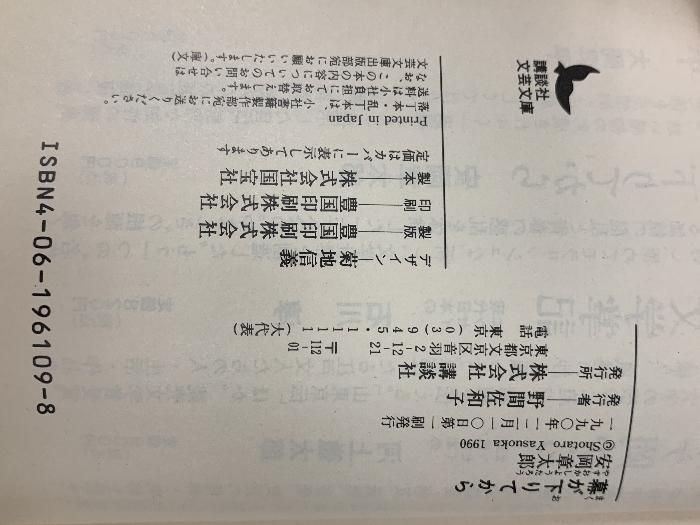 幕が下りてから
まく
お
安岡章太郎
やすおかしょうたろう
©Shotaro Yasuoka 1990
一九九〇年一二月一〇日第一刷発行
発行者――野間佐和子
発行所――株式会社 講談社
東京都文京区音羽2-12-21 〒112-01
電話 東京(03)945・1111(大代表)
デザイン―菊地信義
製版――豊国印刷株式会社
印刷――豊国印刷株式会社
製本――株式会社国宝社
定価はカバーに表示してあります
Printed in Japan
落丁本・乱丁本は、小社書籍製作部宛にお送りください。
送料は小社負担にてお取替えします。
なお、この本の内容についてのお問い合せは
文芸文庫出版部宛にお願いいたします。(庫文)
講談社
文芸文庫
ISBN4-06-196109-8